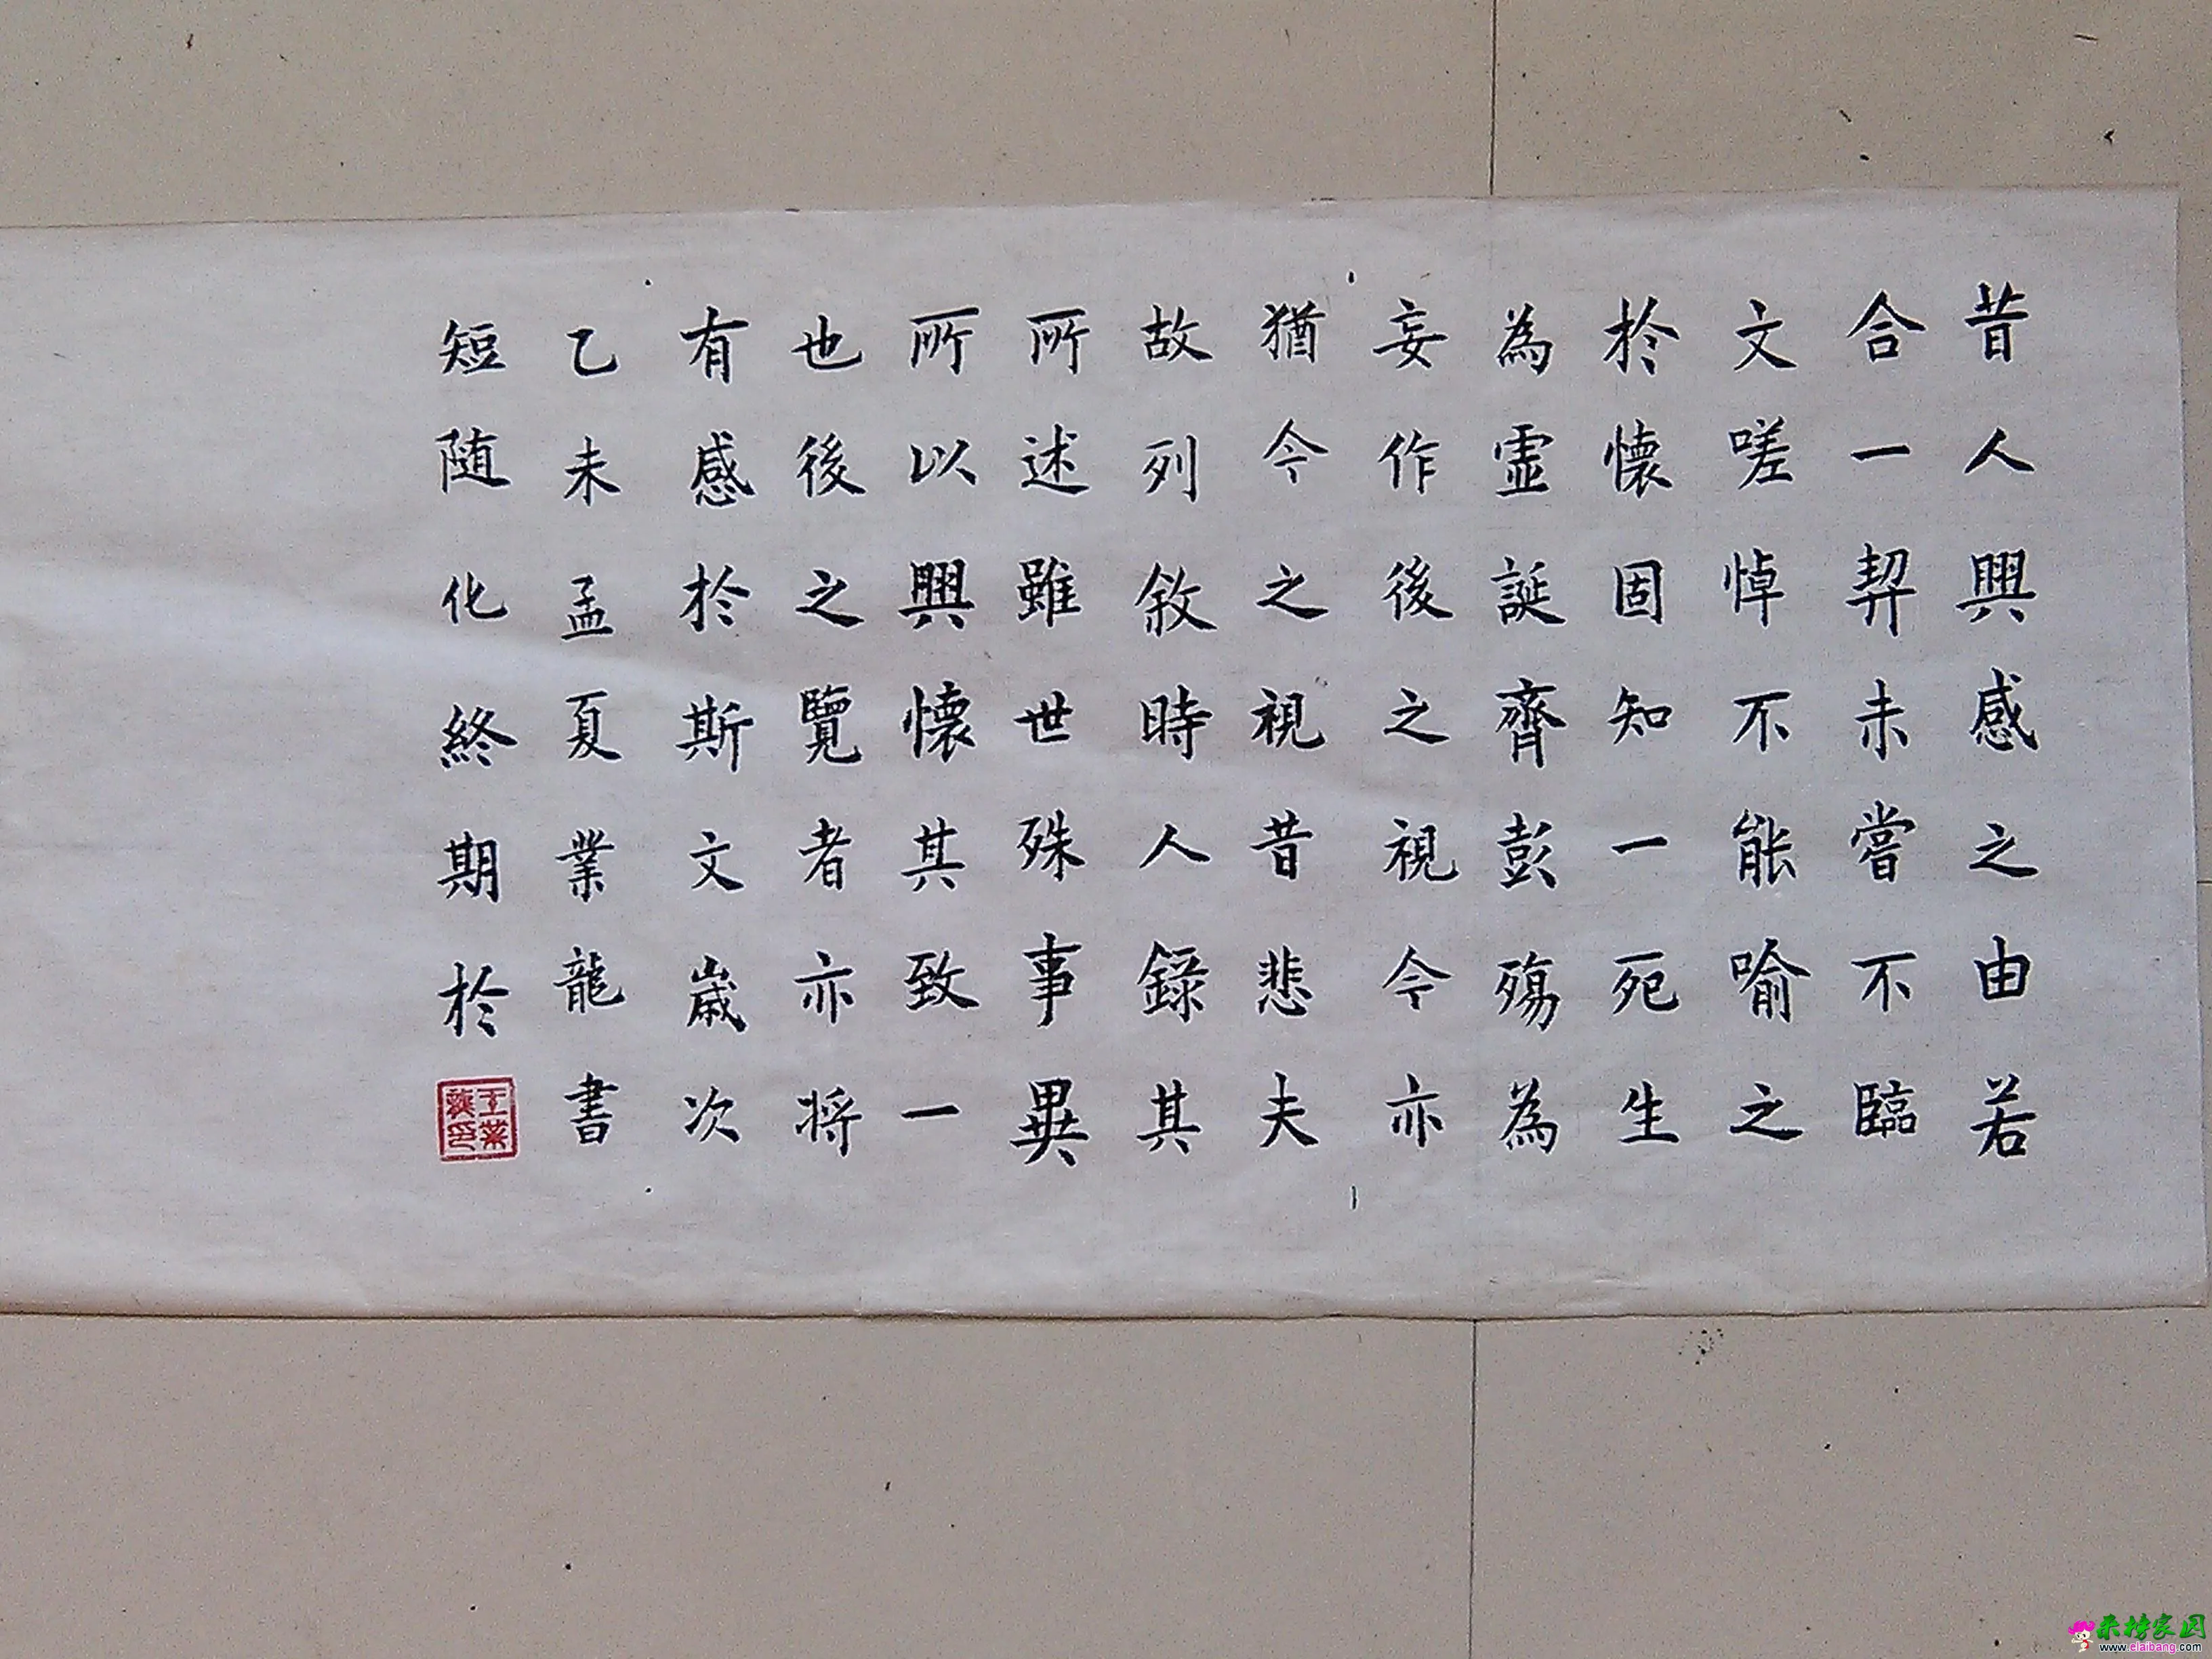 昔人興感之由若
合一契未嘗不臨
文嗟悼不能喻之
於懷固知一死生
為虛誕齊彭殤為
妄作後之視今亦
猶今之視昔悲夫
故列敘時人錄其
所述雖世殊事異
所以興懷其致一
也後之覽者亦将
有感於斯文嵗次
乙未孟夏業龍書
短随化終期於
来榜家园
www.elaibang.com